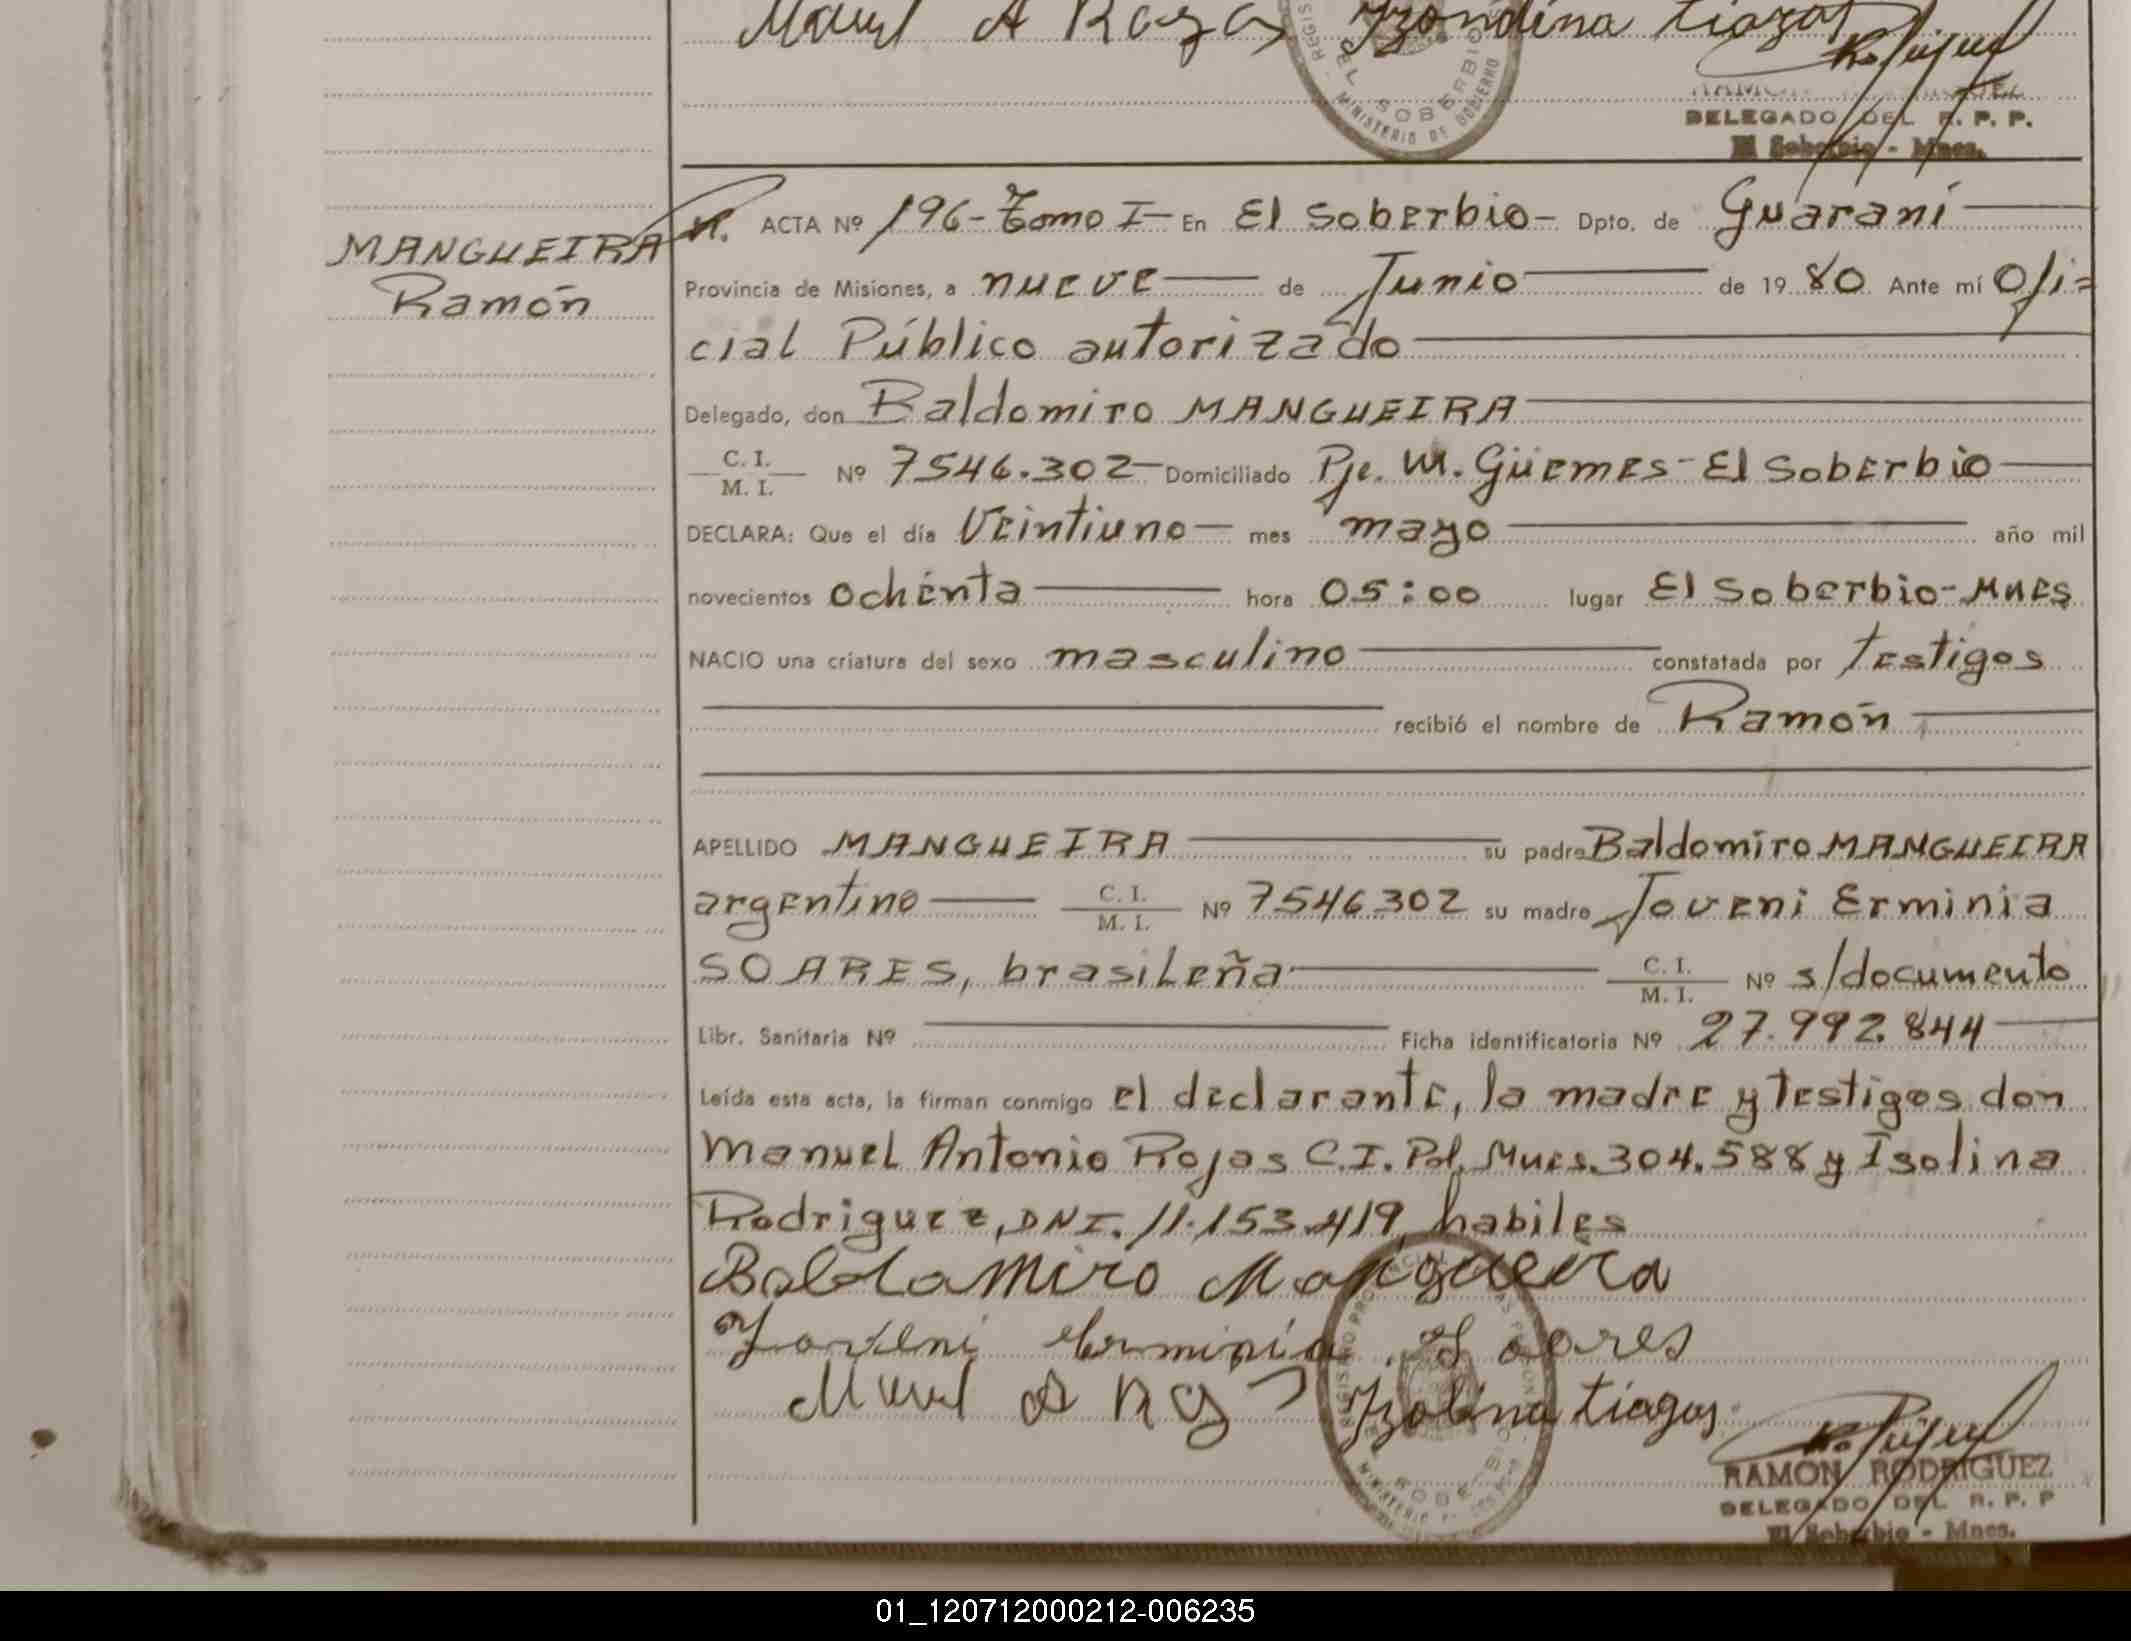 Manuel A Rojas
REGIS
EL SOBERBIO
MINISTERIO DE GOBIERNO
DELEGADO DEL R. P. P.
El Soberbio - Mnes.
MANGUEIRA
Ramón
ACTA Nº 196- Tomo I- En El Soberbio- Dpto. de Guaraní
Provincia de Misiones, a nueve de Junio de 1980 Ante mí Ofi=
cial Público autorizado
Delegado, don Baldomiro MANGUEIRA
C. I. / M. I. Nº 7546.302 Domiciliado Pje. M. Güemes - El Soberbio
DECLARA: Que el día Veintiuno mes mayo año mil
novecientos ochenta hora 05:00 lugar El Soberbio-Mnes
NACIO una criatura del sexo masculino constatada por testigos
recibió el nombre de Ramón
APELLIDO MANGUEIRA su padre Baldomiro MANGUEIRA
argentino C. I. / M. I. Nº 7546302 su madre Joveni Erminia
SOARES, brasileña C. I. / M. I. Nº s/documento
Libr. Sanitaria Nº Ficha identificatoria Nº 27.992.844
Leída esta acta, la firman conmigo el declarante, la madre y testigos don
Manuel Antonio Rojas C.I. Pol. Mnes. 304.588 y Isolina
Rodriguez, DNI. 11.153.419, habiles
Baldamiro Mangueira
Joveni Erminia Soares
Izolina tiagas
RAMON RODRIGUEZ
DELEGADO DEL R. P. P
El Soberbio - Mnes.
01_120712000212-006235